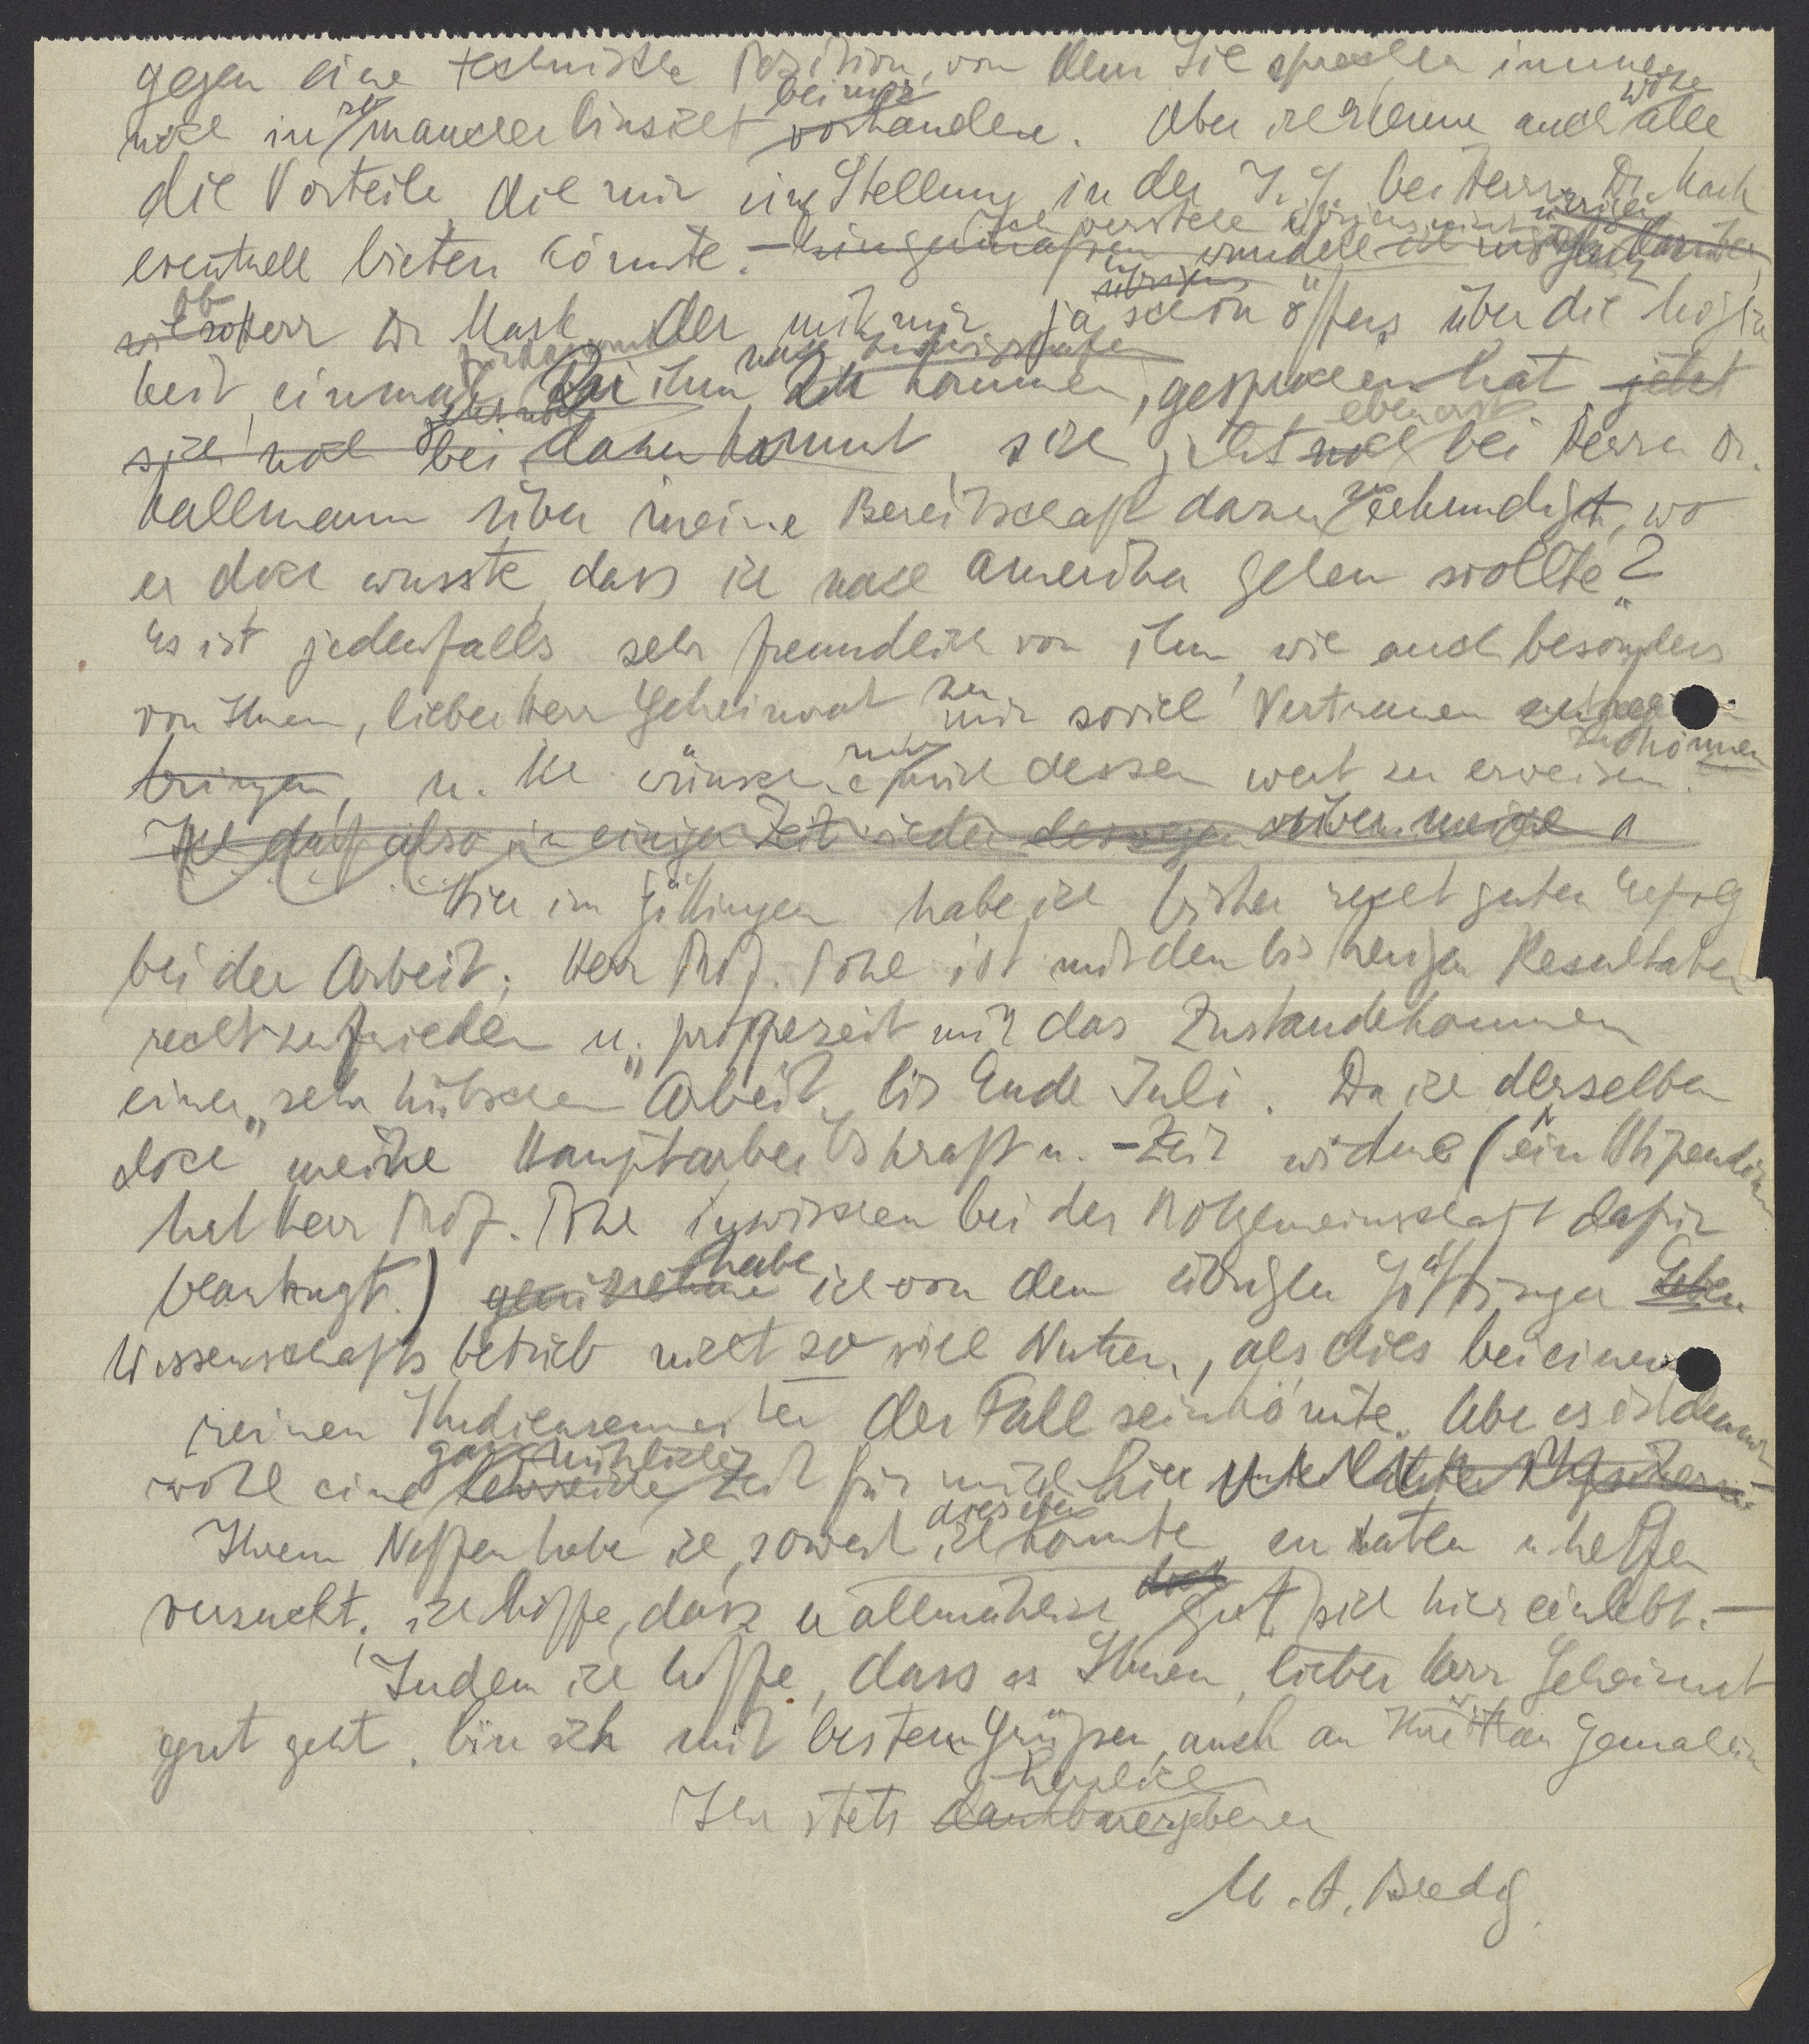 gegen eine technische Position, von dem Sie sprachen immer
noch in so mancher Hinsicht bei mir vorhanden. Aber ich erkenne auch wohl alle
die Vorteile, die mir eine Stellung in der I. G. bei Herrn Dr. Mark
eventuell bieten könnte. – Ich verstehe übrigens nicht wundere ich mich
ob Herr Dr. Mark, der mit mir ja schon öfters über die Möglich
keit, einmal bei ihm nach Ludwigshafen zu kommen, gesprochen hat jetzt
sich noch bei dazu kommt sich jetzt noch eben erst bei Herrn Dr.
Kallmann über meine Bereitschaft dazu zu erkundigt, wo
er doch wusste, dass ich nach Amerika gehen wollte?
Es ist jedenfalls sehr freundlich von ihm, wie auch besonders
von Ihnen, lieber Herr Geheimrat zu mir soviel Vertrauen
bringen, u. ich wünsche nur mich dessen wert zu erweisen zu können.
Ich darf also in einiger Zeit wieder deswegen
Hier in Göttingen habe ich bisher recht guten Erfolg
bei der Arbeit; Herr Prof. Pohl ist mit den bisherigen Resultaten
recht zufrieden u. prophezeit mir das Zustandekommen
einer „sehr hübschen" Arbeit, bis Ende Juli. Da ich derselben
doch meine Hauptarbeitskraft u. -Zeit widme (ein Stipendium
hat Herr Prof. Pohl inzwischen bei der Notgemeinschaft dafür
beantragt.) habe ich von dem übrigen Göttinger Leben
Wissenschaftsbetrieb nicht so viel Nutzen, als dies bei einem
reinen Studiensemester der Fall sein könnte. Aber es ist dennoch
wohl eine ganz nützliche Zeit für mich hier
Ihrem Neffen habe ich, soweit ich dies eben konnte zu raten u. helfen
versucht; ich hoffe, dass er allmählich doch gut sich hier einlebt. –
Indem ich hoffe, dass es Ihnen, lieber Herr Geheimrat
gut geht, bin ich mit besten Grüßen, auch an Ihre Frau Gemahlin
Ihr stets dankbar herzlich ergebener
M. A. Bredig.